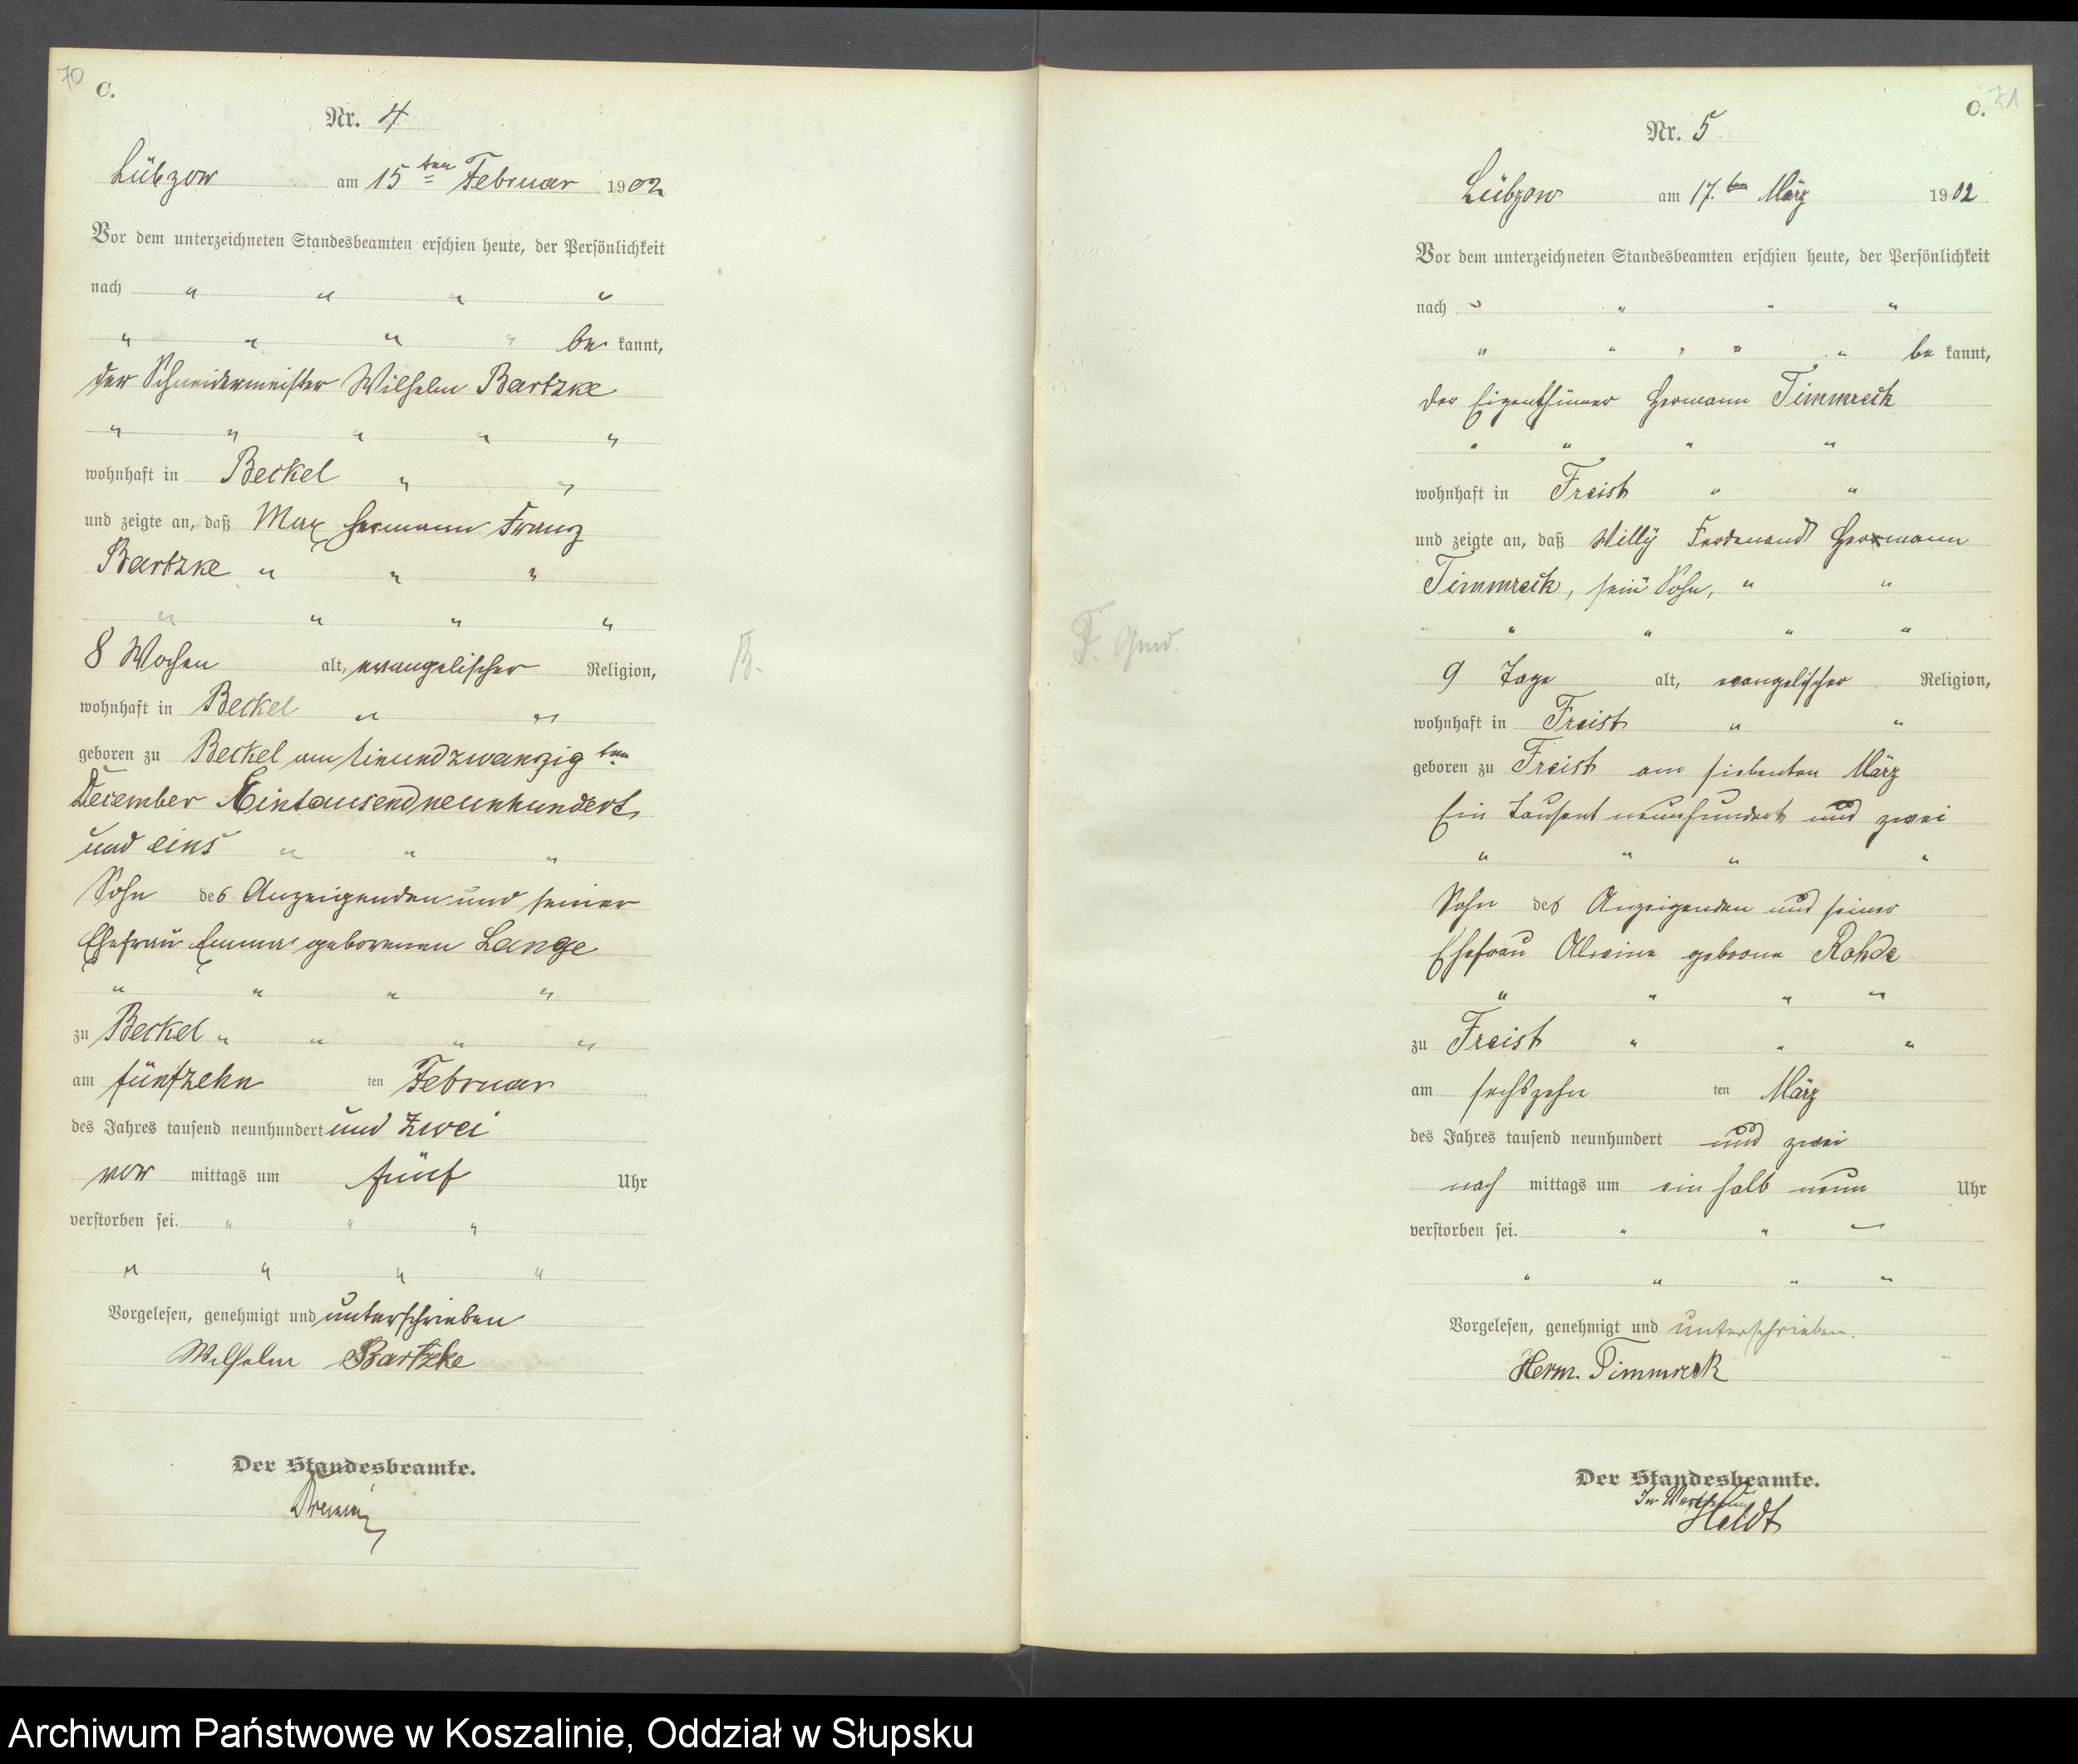 70
C.
Nr. 4
Lübzow am 15ten Februar 1902
Vor dem unterzeichneten Standesbeamten erschien heute, der Persönlichkeit
nach " " " "
" " " " be kannt,
der Schneidermeister Wilhelm Bartzke
" " " " "
wohnhaft in Beckel " "
und zeigte an, daß Max Hermann Franz
Bartzke " " "
" " " "
8 Wochen alt, evangelischer Religion,
wohnhaft in Beckel " "
geboren zu Beckel am Einundzwanzigten
December Eintausendneunhundert
und eins " " "
Sohn des Anzeigenden und seiner
Ehefrau Emma geborenen Lange
" " " "
zu Beckel " " " "
am fünfzehn ten Februar
des Jahres tausend neunhundert und zwei
vor mittags um fünf Uhr
verstorben sei. " " "
" " " "
Vorgelesen, genehmigt und unterschrieben
Wilhelm Bartzke
Der Standesbeamte.
B.
71
C.
Nr. 5
Lübzow am 17.ten März 1902
Vor dem unterzeichneten Standesbeamten erschien heute, der Persönlichkeit
nach " " " "
" " " " " be kannt,
der Eigenthümer Hermann Timmreck
" " " "
wohnhaft in Freist " "
und zeigte an, daß Willy Ferdenand Hermann
Timmreck, sein Sohn, " "
" " " "
9 Tage alt, evangelischer Religion,
wohnhaft in Freist " "
geboren zu Freist am siebenten März
Ein Tausent neunhundert und zwei
" " " "
Sohn des Anzeigenden und seiner
Ehefrau Alwine geborne Rohde
" " " "
zu Freist " " "
am sechszehn ten März
des Jahres tausend neunhundert und zwei
nach mittags um ein halb neun Uhr
verstorben sei. " " "
" " " "
Vorgelesen, genehmigt und unterschrieben.
Herm. Timmreck
Der Standesbeamte.
In Vertretung
Heldt
Archiwum Państwowe w Koszalinie, Oddział w Słupsku